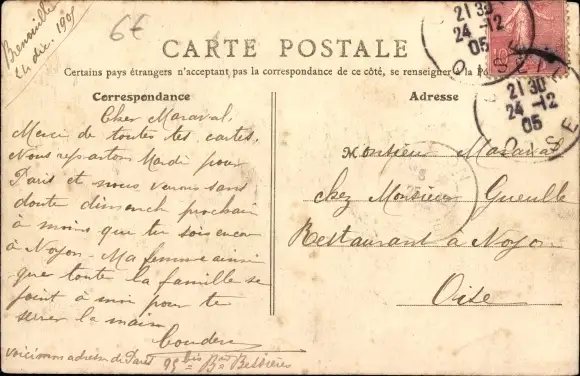 Brenouille
24 dec. 1905
6€
CARTE POSTALE
Certains pays étrangers n'acceptant pas la correspondance de ce côté, se renseigner à la Po
Correspondance
Adresse
21 30
24 -12
05
OISE
21 30
24 -12
05
OISE
10
Cher Maraval,
Merci de toutes tes cartes.
Nous repartons Mardi pour
Paris et nous verons sans
doute dimench prochain
à moins que tu sois encor
à Noyon. Ma femme ainsi
que toute la famille se
joint à moi pour te
serrer la main
Couderc
voici mon adresse de Paris 95 bis Bard Bessières
Monsieur Maraval
chez Monsieur Gueulle
Restaurant à Noyon
Oise